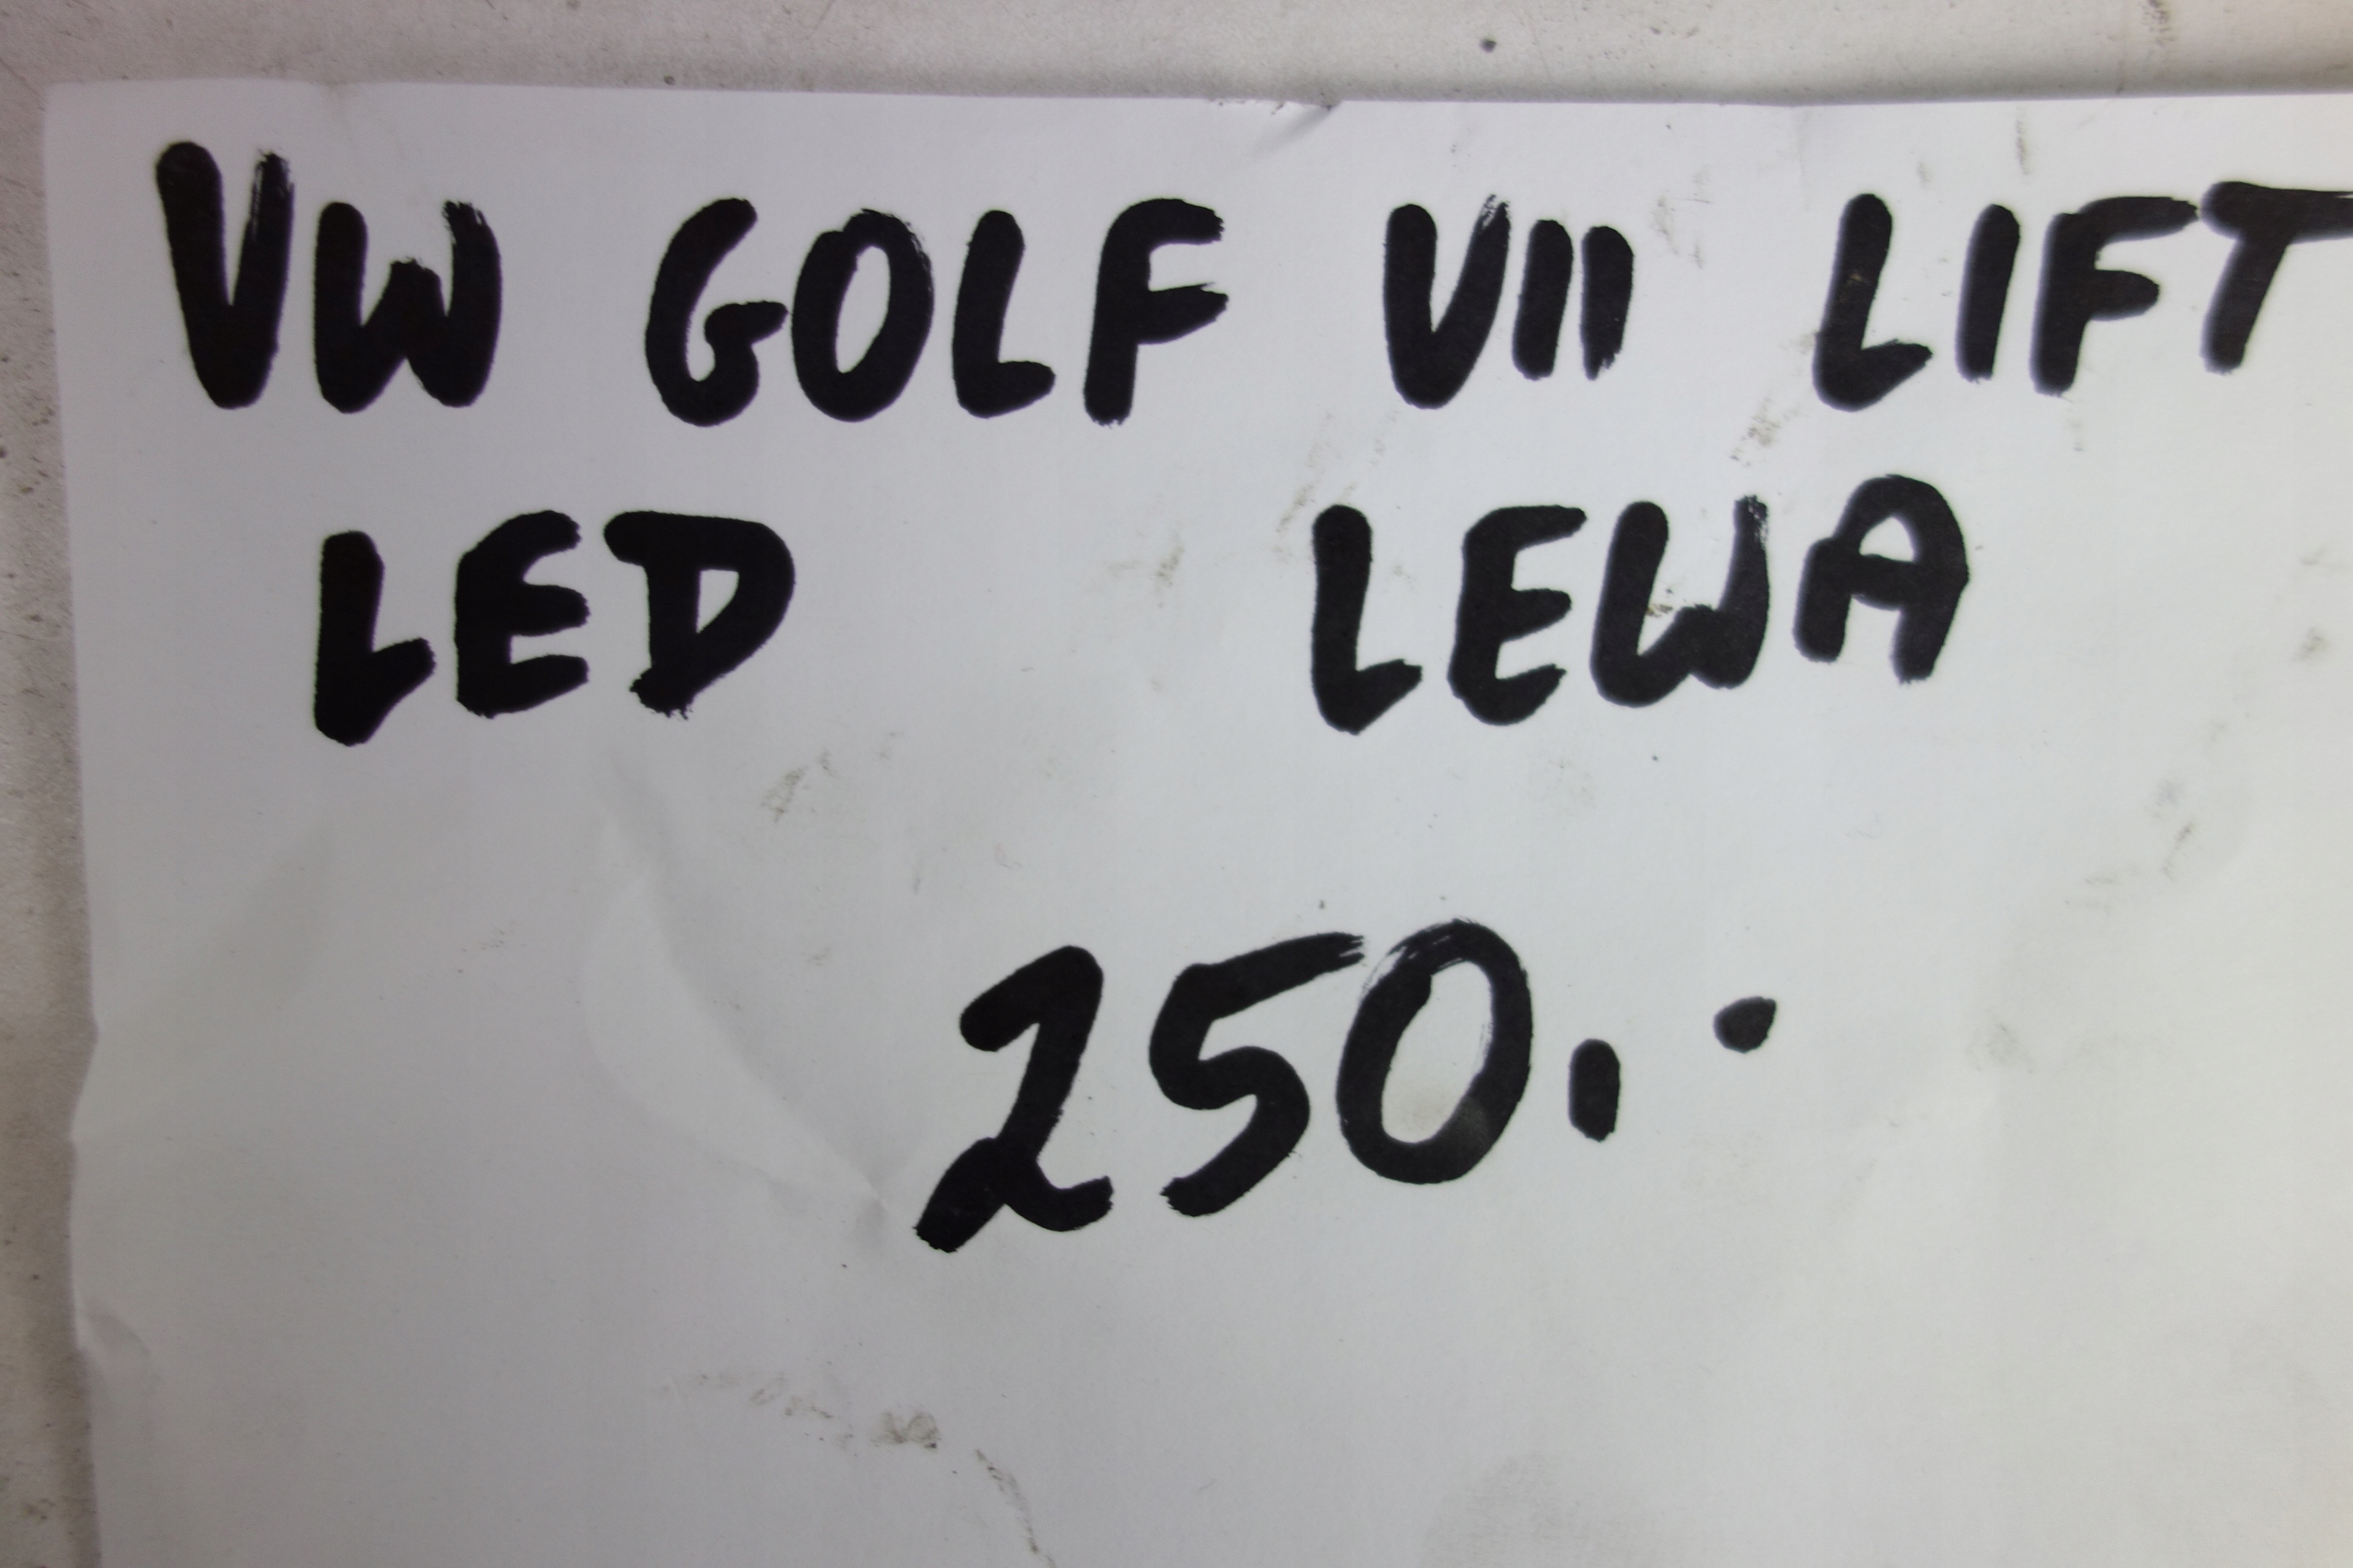 VW GOLF VII LIFT
LED LEWA
250.-